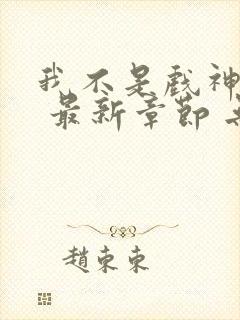 我不是戲神
最新章節
趙東東